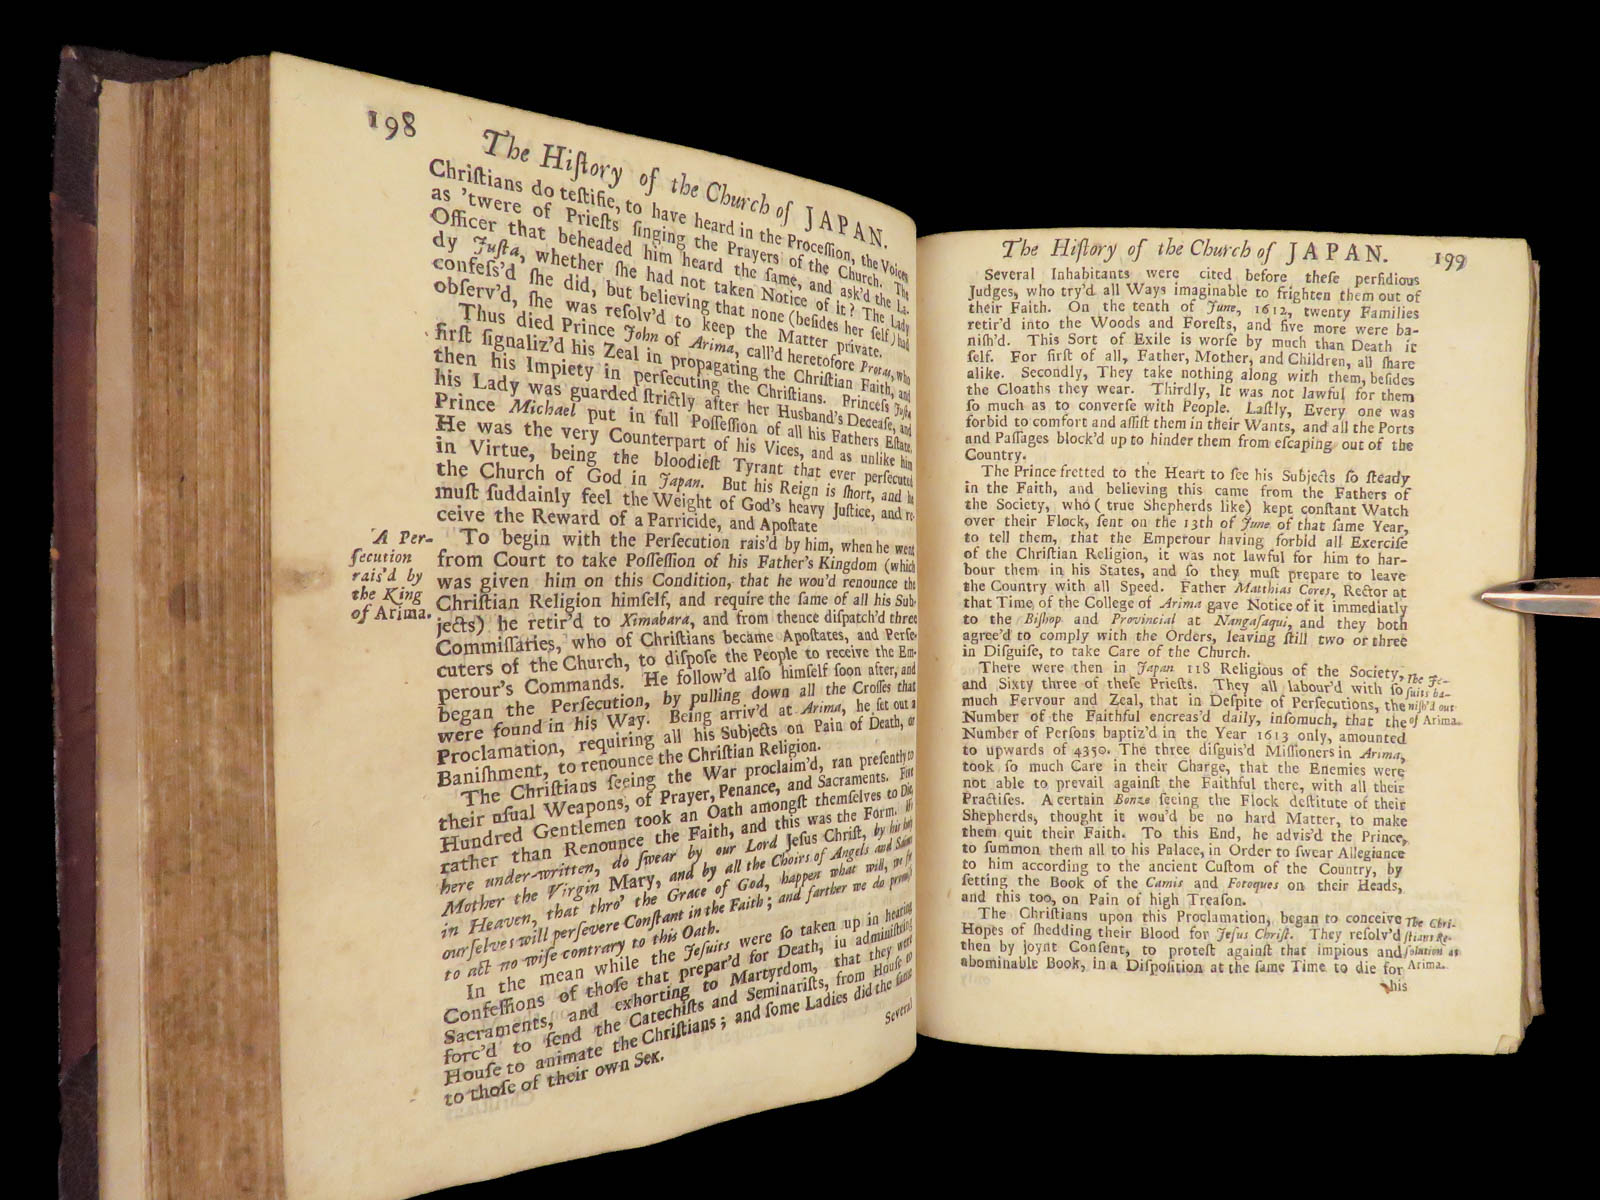 198
The Hiſtory of the Church of JAPAN.
Chriſtians do teſtifie, to have heard in the Proceſſion, the Voices
as 'twere of Prieſts ſinging the Prayers of the Church. The
Officer that beheaded him heard the ſame, and ask'd the La-
dy Juſta, whether ſhe had not taken Notice of it? The Lady
confeſs'd ſhe did, but believing that none (beſides her ſelf) had
obſerv'd, ſhe was reſolv'd to keep the Matter private.
Thus died Prince John of Arima, call'd heretofore Protas, who
firſt ſignaliz'd his Zeal in propagating the Chriſtian Faith, and
then his Impiety in perſecuting the Chriſtians. Princeſs Juſta
his Lady was guarded ſtrictly after her Husband's Deceaſe, and
Prince Michael put in full Poſſeſſion of all his Fathers Eſtate.
He was the very Counterpart of his Vices, and as unlike him
in Virtue, being the bloodieſt Tyrant that ever perſecuted
the Church of God in Japan. But his Reign is ſhort, and he
muſt ſuddainly feel the Weight of God's heavy Juſtice, and re-
ceive the Reward of a Parricide, and Apoſtate
A Per-
ſecution
rais'd by
the King
of Arima.
To begin with the Perſecution rais'd by him, when he went
from Court to take Poſſeſſion of his Father's Kingdom (which
was given him on this Condition, that he wou'd renounce the
Chriſtian Religion himſelf, and require the ſame of all his Sub-
jects) he retir'd to Ximabara, and from thence diſpatch'd three
Commiſſaries, who of Chriſtians became Apoſtates, and Perſe-
cuters of the Church, to diſpoſe the People to receive the Em-
perour's Commands. He follow'd alſo himſelf ſoon after, and
began the Perſecution, by pulling down all the Croſſes that
were found in his Way. Being arriv'd at Arima, he ſet out a
Proclamation, requiring all his Subjects on Pain of Death, or
Baniſhment, to renounce the Chriſtian Religion.
The Chriſtians ſeeing the War proclaim'd, ran preſently to
their uſual Weapons, of Prayer, Penance, and Sacraments. Five
Hundred Gentlemen took an Oath amongſt themſelves to Die,
rather than Renounce the Faith, and this was the Form. We
here under-written, do ſwear by our Lord Jeſus Chriſt, by his holy
Mother the Virgin Mary, and by all the Choirs of Angels and Saints
in Heaven, that thro' the Grace of God, happen what will, we
ourſelves will perſevere Conſtant in the Faith; and farther we do promiſe
to act no wiſe contrary to this Oath.
In the mean while the Jeſuits were ſo taken up in hearing
Confeſſions of thoſe that prepar'd for Death, iu adminiſtring
Sacraments, and exhorting to Martyrdom, that they were
forc'd to ſend the Catechiſts and Seminariſts, from Houſe to
Houſe to animate the Chriſtians; and ſome Ladies did the ſame
to thoſe of their own Sex.
Several
The Hiſtory of the Church of JAPAN. 199
Several Inhabitants were cited before theſe perfidious
Judges, who try'd all Ways imaginable to frighten them out of
their Faith. On the tenth of June, 1612, twenty Families
retir'd into the Woods and Foreſts, and five more were ba-
niſh'd. This Sort of Exile is worſe by much than Death it
ſelf. For firſt of all, Father, Mother, and Children, all ſhare
alike. Secondly, They take nothing along with them, beſides
the Cloaths they wear. Thirdly, It was not lawful for them
ſo much as to converſe with People. Laſtly, Every one was
forbid to comfort and aſſiſt them in their Wants, and all the Ports
and Paſſages block'd up to hinder them from eſcaping out of the
Country.
The Prince fretted to the Heart to ſee his Subjects ſo ſteady
in the Faith, and believing this came from the Fathers of
the Society, who ( true Shepherds like) kept conſtant Watch
over their Flock, ſent on the 13th of June of that ſame Year,
to tell them, that the Emperour having forbid all Exerciſe
of the Chriſtian Religion, it was not lawful for him to har-
bour them in his States, and ſo they muſt prepare to leave
the Country with all Speed. Father Matthias Cores, Rector at
that Time of the College of Arima gave Notice of it immediatly
to the Biſhop and Provincial at Nangaſaqui, and they both
agree'd to comply with the Orders, leaving ſtill two or three
in Diſguiſe, to take Care of the Church.
There were then in Japan 118 Religious of the Society,
and Sixty three of theſe Prieſts. They all labour'd with ſo
much Fervour and Zeal, that in Deſpite of Perſecutions, the
Number of the Faithful encreas'd daily, inſomuch, that the
Number of Perſons baptiz'd in the Year 1613 only, amounted
to upwards of 4350. The three diſguis'd Miſſioners in Arima,
took ſo much Care in their Charge, that the Enemies were
not able to prevail againſt the Faithful there, with all their
Practiſes. A certain Bonze ſeeing the Flock deſtitute of their
Shepherds, thought it wou'd be no hard Matter, to make
them quit their Faith. To this End, he advis'd the Prince,
to ſummon them all to his Palace, in Order to ſwear Allegiance
to him according to the ancient Cuſtom of the Country, by
ſetting the Book of the Camis and Fotoques on their Heads,
and this too, on Pain of high Treaſon.
The Je-
ſuits ba-
niſh'd out
of Arima.
The Chriſtians upon this Proclamation, began to conceive
Hopes of ſhedding their Blood for Jeſus Chriſt. They reſolv'd
then by joynt Conſent, to proteſt againſt that impious and
abominable Book, in a Diſpoſition at the ſame Time to die for
The Chri-
ſtians Re-
ſolution at
Arima.
his